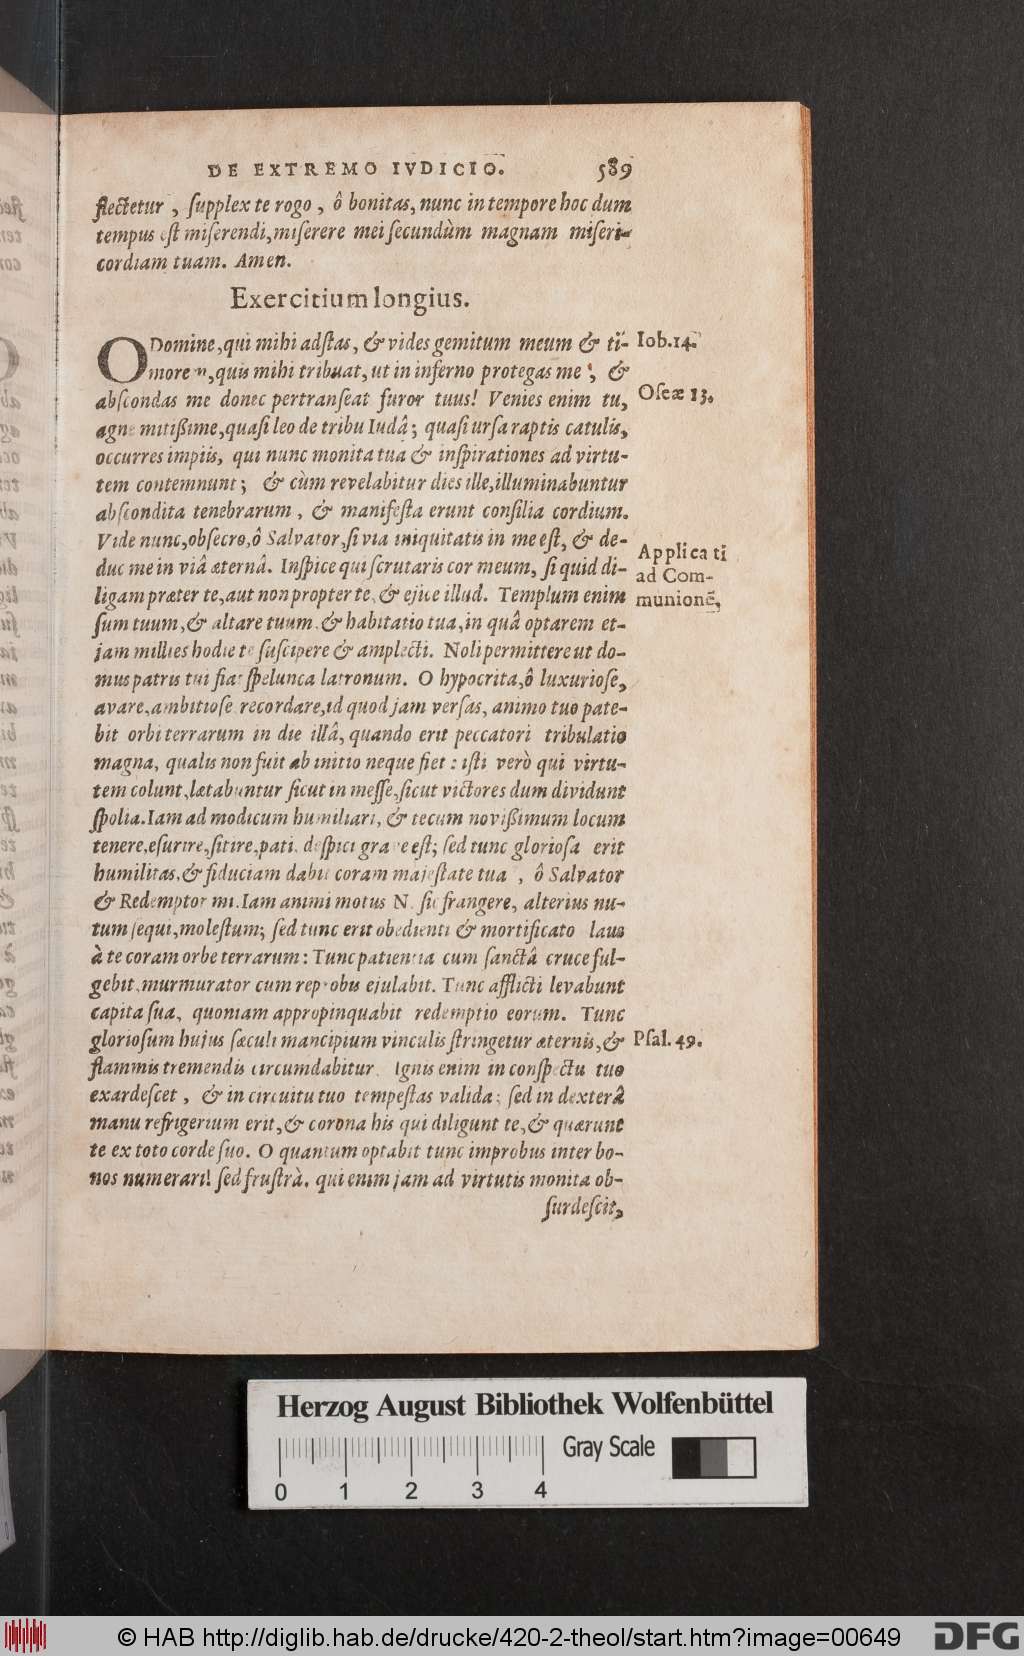 DE EXTREMO IVDICIO. 589
flectetur, supplex te rogo, ô bonitas, nunc in tempore hoc dum
tempus est miserendi, miserere mei secundùm magnam miseri-
cordiam tuam. Amen.
Exercitium longius.
O Domine, qui mihi adstas, & vides gemitum meum & ti- Iob. 14.
morem, quis mihi tribuat, ut in inferno protegas me, &
abscondas me donec pertranseat furor tuus! Venies enim tu, Oseæ 13.
agne mitißime, quasi leo de tribu Iudâ; quasi ursa raptis catulis,
occurres impiis, qui nunc monita tua & inspirationes ad virtu-
tem contemnunt; & cùm revelabitur dies ille, illuminabuntur
abscondita tenebrarum, & manifesta erunt consilia cordium.
Vide nunc, obsecro, ô Salvator, si via iniquitatis in me est, & de- Applicati
duc me in viâ æternâ. Inspice qui scrutaris cor meum, si quid di- ad Com-
ligam præter te, aut non propter te, & ejice illud. Templum enim munionē,
sum tuum, & altare tuum, & habitatio tua, in quâ optarem et-
jam millies hodie te suscipere & amplecti. Noli permittere ut do-
mus patris tui fiat spelunca latronum. O hypocrita, ô luxuriose,
avare, ambitiose, recordare, id quod jam versas, animo tuo pate-
bit orbi terrarum in die illâ, quando erit peccatori tribulatio
magna, qualis non fuit ab initio neque fiet: isti verò qui virtu-
tem colunt, lætabuntur sicut in messe, sicut victores dum dividunt
spolia. Iam ad modicum humiliari, & tecum novißimum locum
tenere, esurire, sitire, pati, despici grave est; sed tunc gloriosa erit
humilitas, & fiduciam dabit coram majestate tua, ô Salvator
& Redemptor mi. Iam animi motus N. sic frangere, alterius nu-
tum sequi, molestum; sed tunc erit obedienti & mortificato laus
à te coram orbe terrarum: Tunc patientia cum sanctâ cruce ful-
gebit, murmurator cum reprobis ejulabit. Tunc afflicti levabunt
capita sua, quoniam appropinquabit redemptio eorum. Tunc
gloriosum hujus sæculi mancipium vinculis stringetur æternis, & Psal. 49.
flammis tremendis circumdabitur. Ignis enim in conspectu tuo
exardescet, & in circuitu tuo tempestas valida; sed in dexterâ
manu refrigerium erit, & corona his qui diligunt te, & quærunt
te ex toto corde suo. O quantum optabit tunc improbus inter bo-
nos numerari! sed frustrà, qui enim jam ad virtutis monita ob-
surdescit,
Herzog August Bibliothek Wolfenbüttel
Gray Scale
0 1 2 3 4
© HAB http://diglib.hab.de/drucke/420-2-theol/start.htm?image=00649
DFG